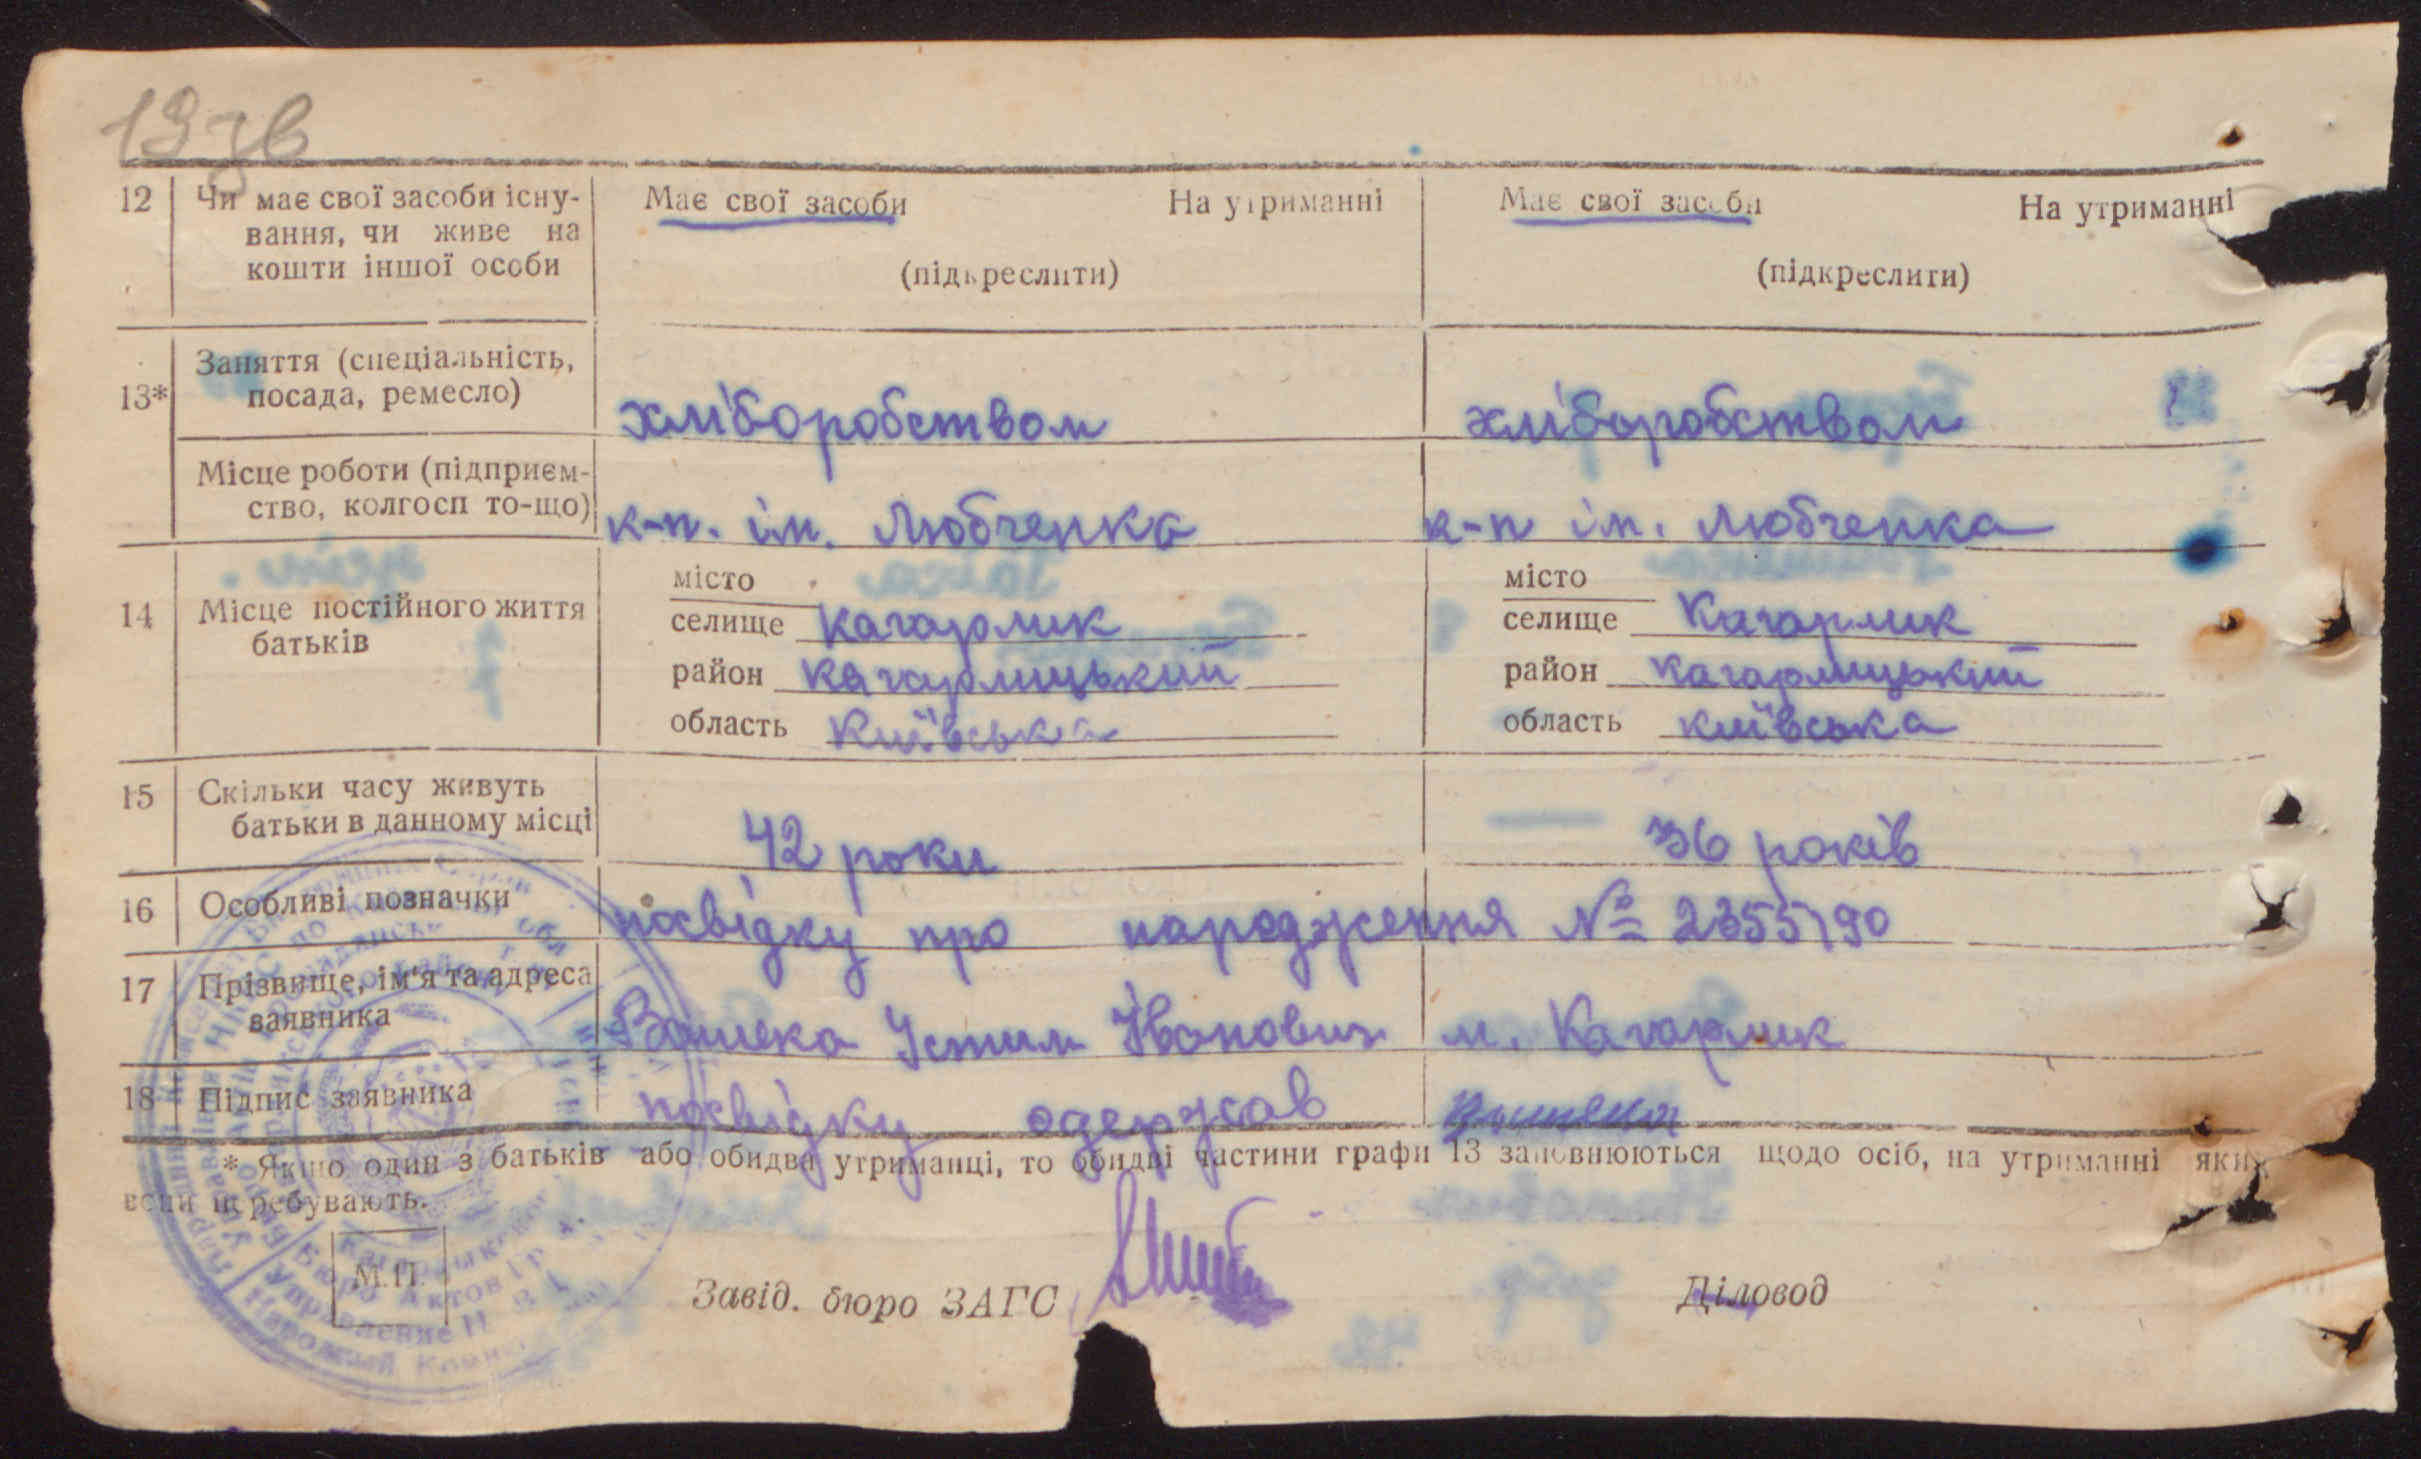 19зв
12 Чи має свої засоби існу-
вання, чи живе на
кошти іншої особи
Має свої засоби На утриманні
(підкреслити)
Має свої засоби На утриманні
(підкреслити)
13* Заняття (спеціальність,
посада, ремесло)
хліборобством
хліборобством
Місце роботи (підприєм-
ство, колгосп то-що)
к-п. ім. Любченка
к-п ім. Любченка
14 Місце постійного життя
батьків
місто
селище Кагарлик
район Кагарлицький
область Київська
місто
селище Кагарлик
район Кагарлицький
область Київська
15 Скільки часу живуть
батьки в данному місці
42 роки
36 років
16 Особливі позначки
посвідку про народження № 2355190
17 Прізвище, ім'я та адреса
заявника
Устим Іванович м. Кагарлик
18 Підпис заявника
посвідку одержав
* Якщо один з батьків або обидва утриманці, то обидві частини графи 13 заповнюються щодо осіб, на утриманні яких
вони перебувають.
М.П.
Завід. бюро ЗАГС
Діловод